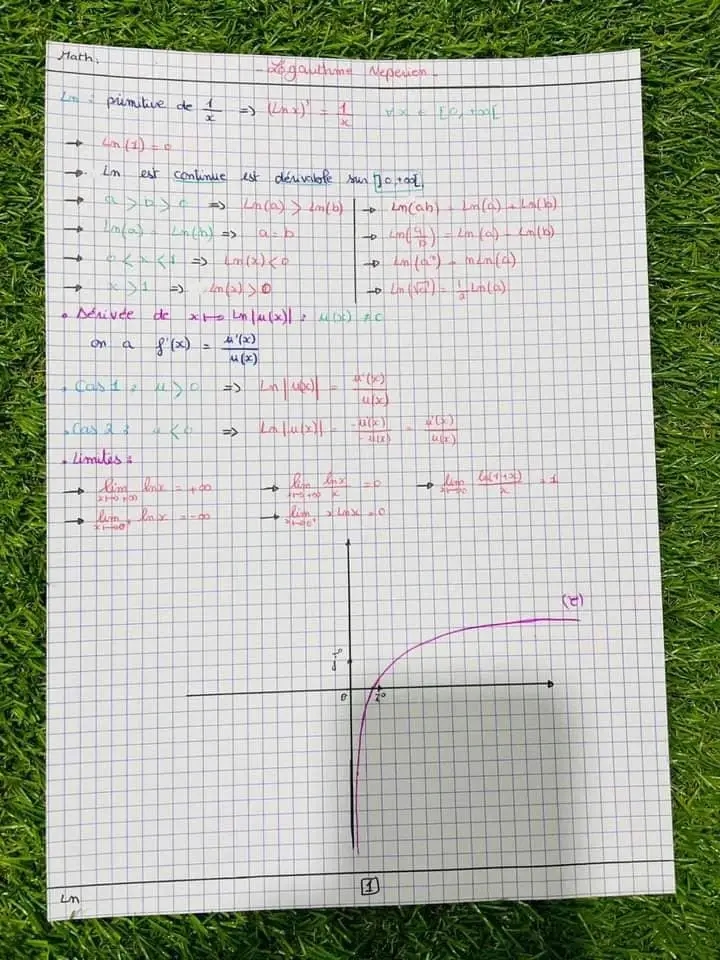 Math.
Logarithme Neperien
Ln : primitive de 1/x => (Lnx)' = 1/x ∀x ∈ [0, +∞[
→ Ln(1) = 0
→ Ln est continue est dérivable sur ]0, +∞[
→ a > b > 0 => Ln(a) > Ln(b)
→ Ln(a) = Ln(b) => a = b
→ 0 < x < 1 => Ln(x) < 0
→ x > 1 => Ln(x) > 0
→ Ln(ab) = Ln(a) + Ln(b)
→ Ln(a/b) = Ln(a) - Ln(b)
→ Ln(aⁿ) = nLn(a)
→ Ln(√a) = 1/2 Ln(a)
• Dérivée de x ↦ Ln|u(x)| : u(x) ≠ 0
on a f'(x) = u'(x)/u(x)
• Cas 1 : u > 0 => Ln|u(x)| = u'(x)/u(x)
• Cas 2 : u < 0 => Ln|u(x)| = -u'(x)/-u(x) = u'(x)/u(x)
• Limites :
→ lim x→+∞ lnx = +∞ → lim x→+∞ lnx/x = 0 → lim x→0 ln(1+x)/x = 1
→ lim x→0⁺ lnx = -∞ → lim x→0⁺ xLnx = 0
(C)
j
0
i
Ln
1